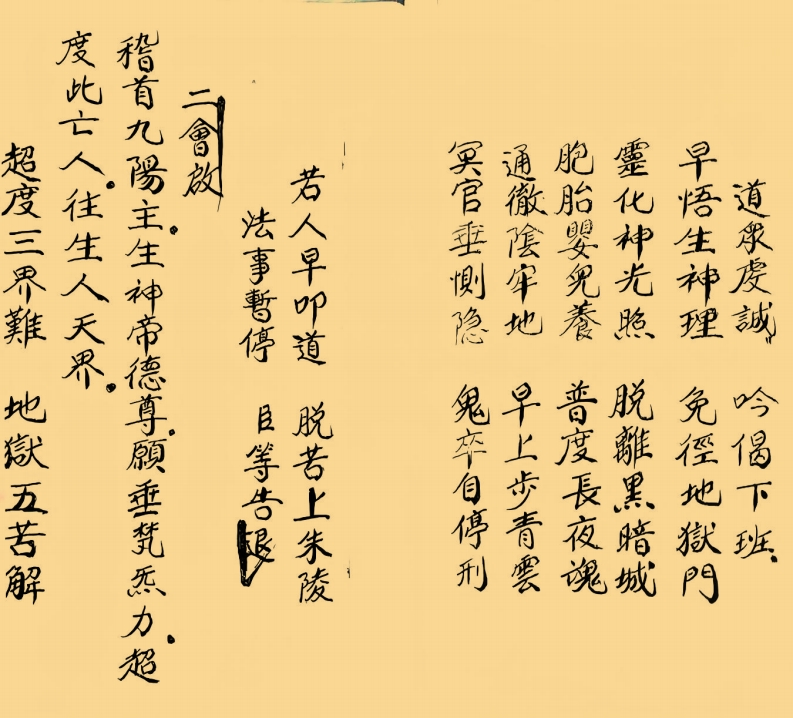 道衆虔誠 吟偈下班
早悟生神理 免徑地獄門
靈化神光照 脱離黑暗城
胞胎嬰兒養 普度長夜魂
通徹陰牢地 早上步青雲
冥官垂惻隐 鬼卒自停刑
若人早叩道 脱苦上朱陵
法事暫停 臣等告退
二會啟
稽首九陽主生神帝德尊願垂梵炁力超
度此亡人往生人天界
超度三界難 地獄五苦解